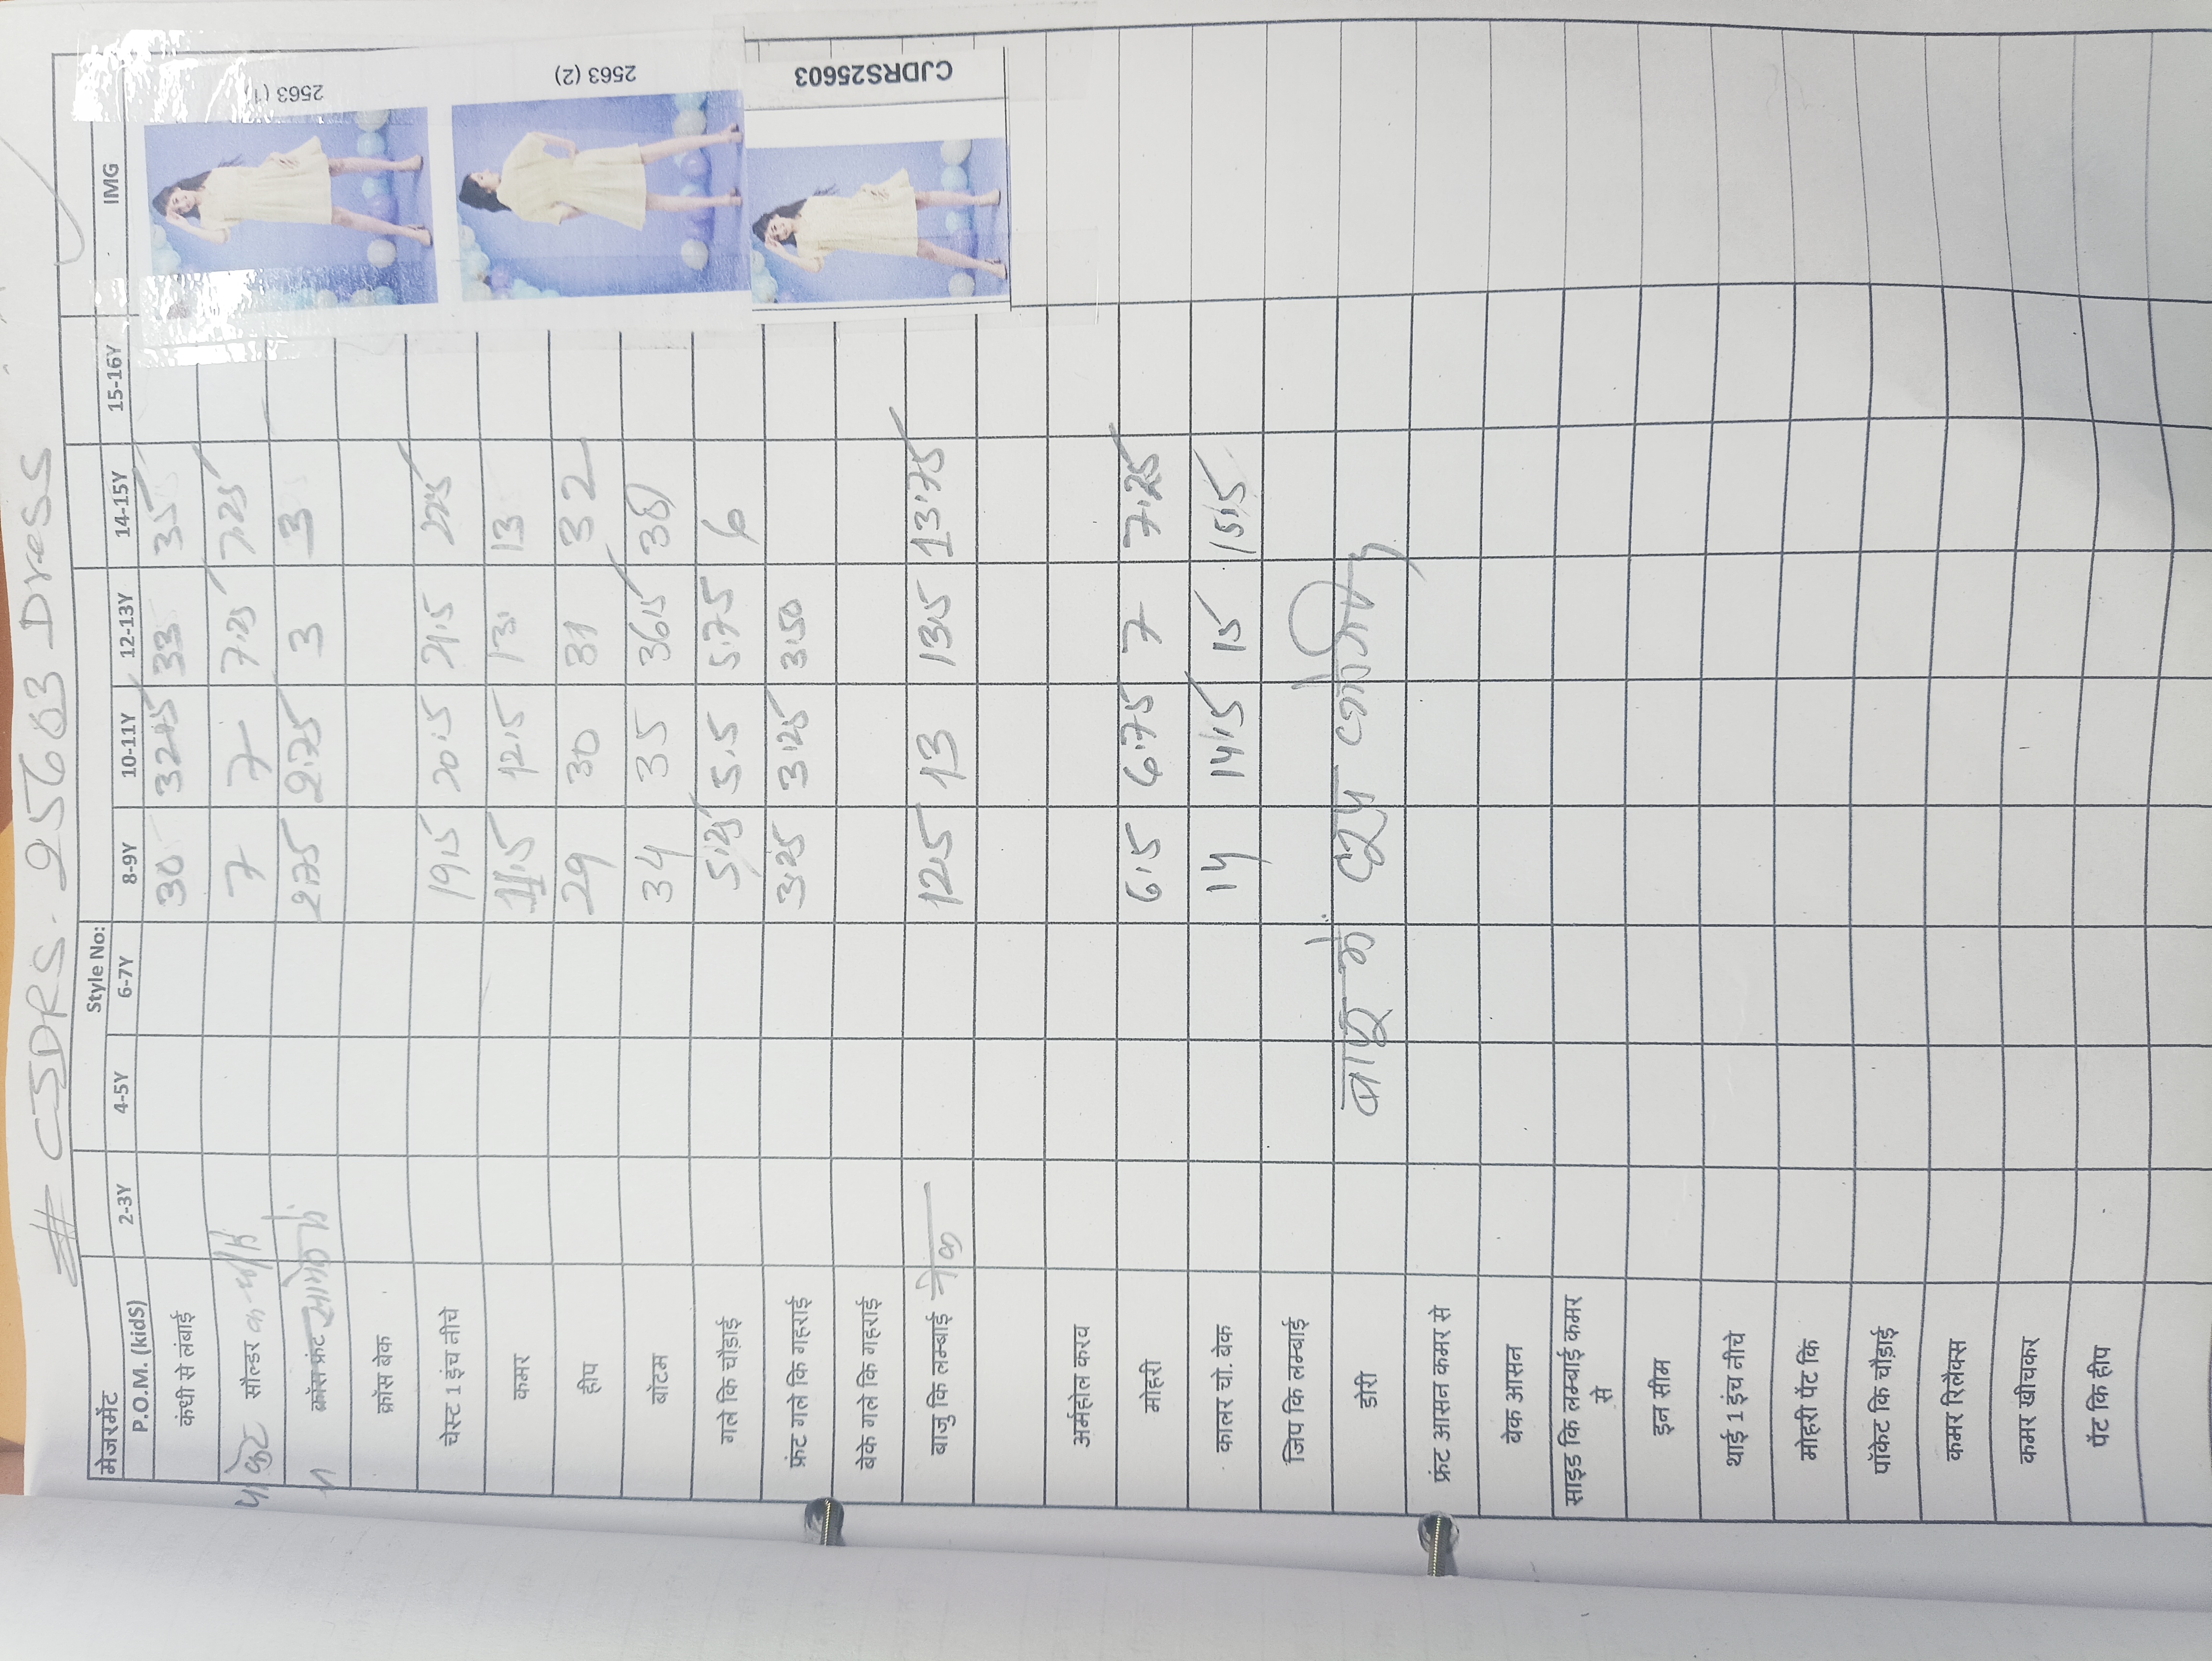 # CJDRS. 25603 Dress
मेजरमेंट Style No:
P.O.M. (kidS) 2-3Y 4-5Y 6-7Y 8-9Y 10-11Y 12-13Y 14-15Y 15-16Y IMG
कंधी से लंबाई 30 32.5 33 35
सौल्डर 7 7 7.25 7.25
क्रॉस फ्रंट 2.75 2.75 3 3
क्रॉस बेक
चेस्ट 1 इंच नीचे 19.5 20.5 21.5 22.5
कमर 11.5 12.5 13 13
हीप 29 30 31 32
बॉटम 34 35 36.5 38
गले कि चौड़ाई 5.25 5.5 5.75 6
फ्रंट गले कि गहराई 3.25 3.25 3.50
बेके गले कि गहराई
बाजु कि लम्बाई नेक 12.5 13 13.5 13.75
अर्महोल करव
मोहरी 6.5 6.75 7 7.25
कालर चो. बेक 14 14.5 15 15.5
जिप कि लम्बाई
डोरी बाजू के
फ्रंट आसन कमर से
बेक आसन
साइड कि लम्बाई कमर
से
इन सीम
थाई 1 इंच नीचे
मोहरी पेंट कि
पॉकेट कि चौड़ाई
कमर रिलैक्स
कमर खीचकर
पेंट कि हीप
2563 (1)
2563 (2)
CJDRS25603